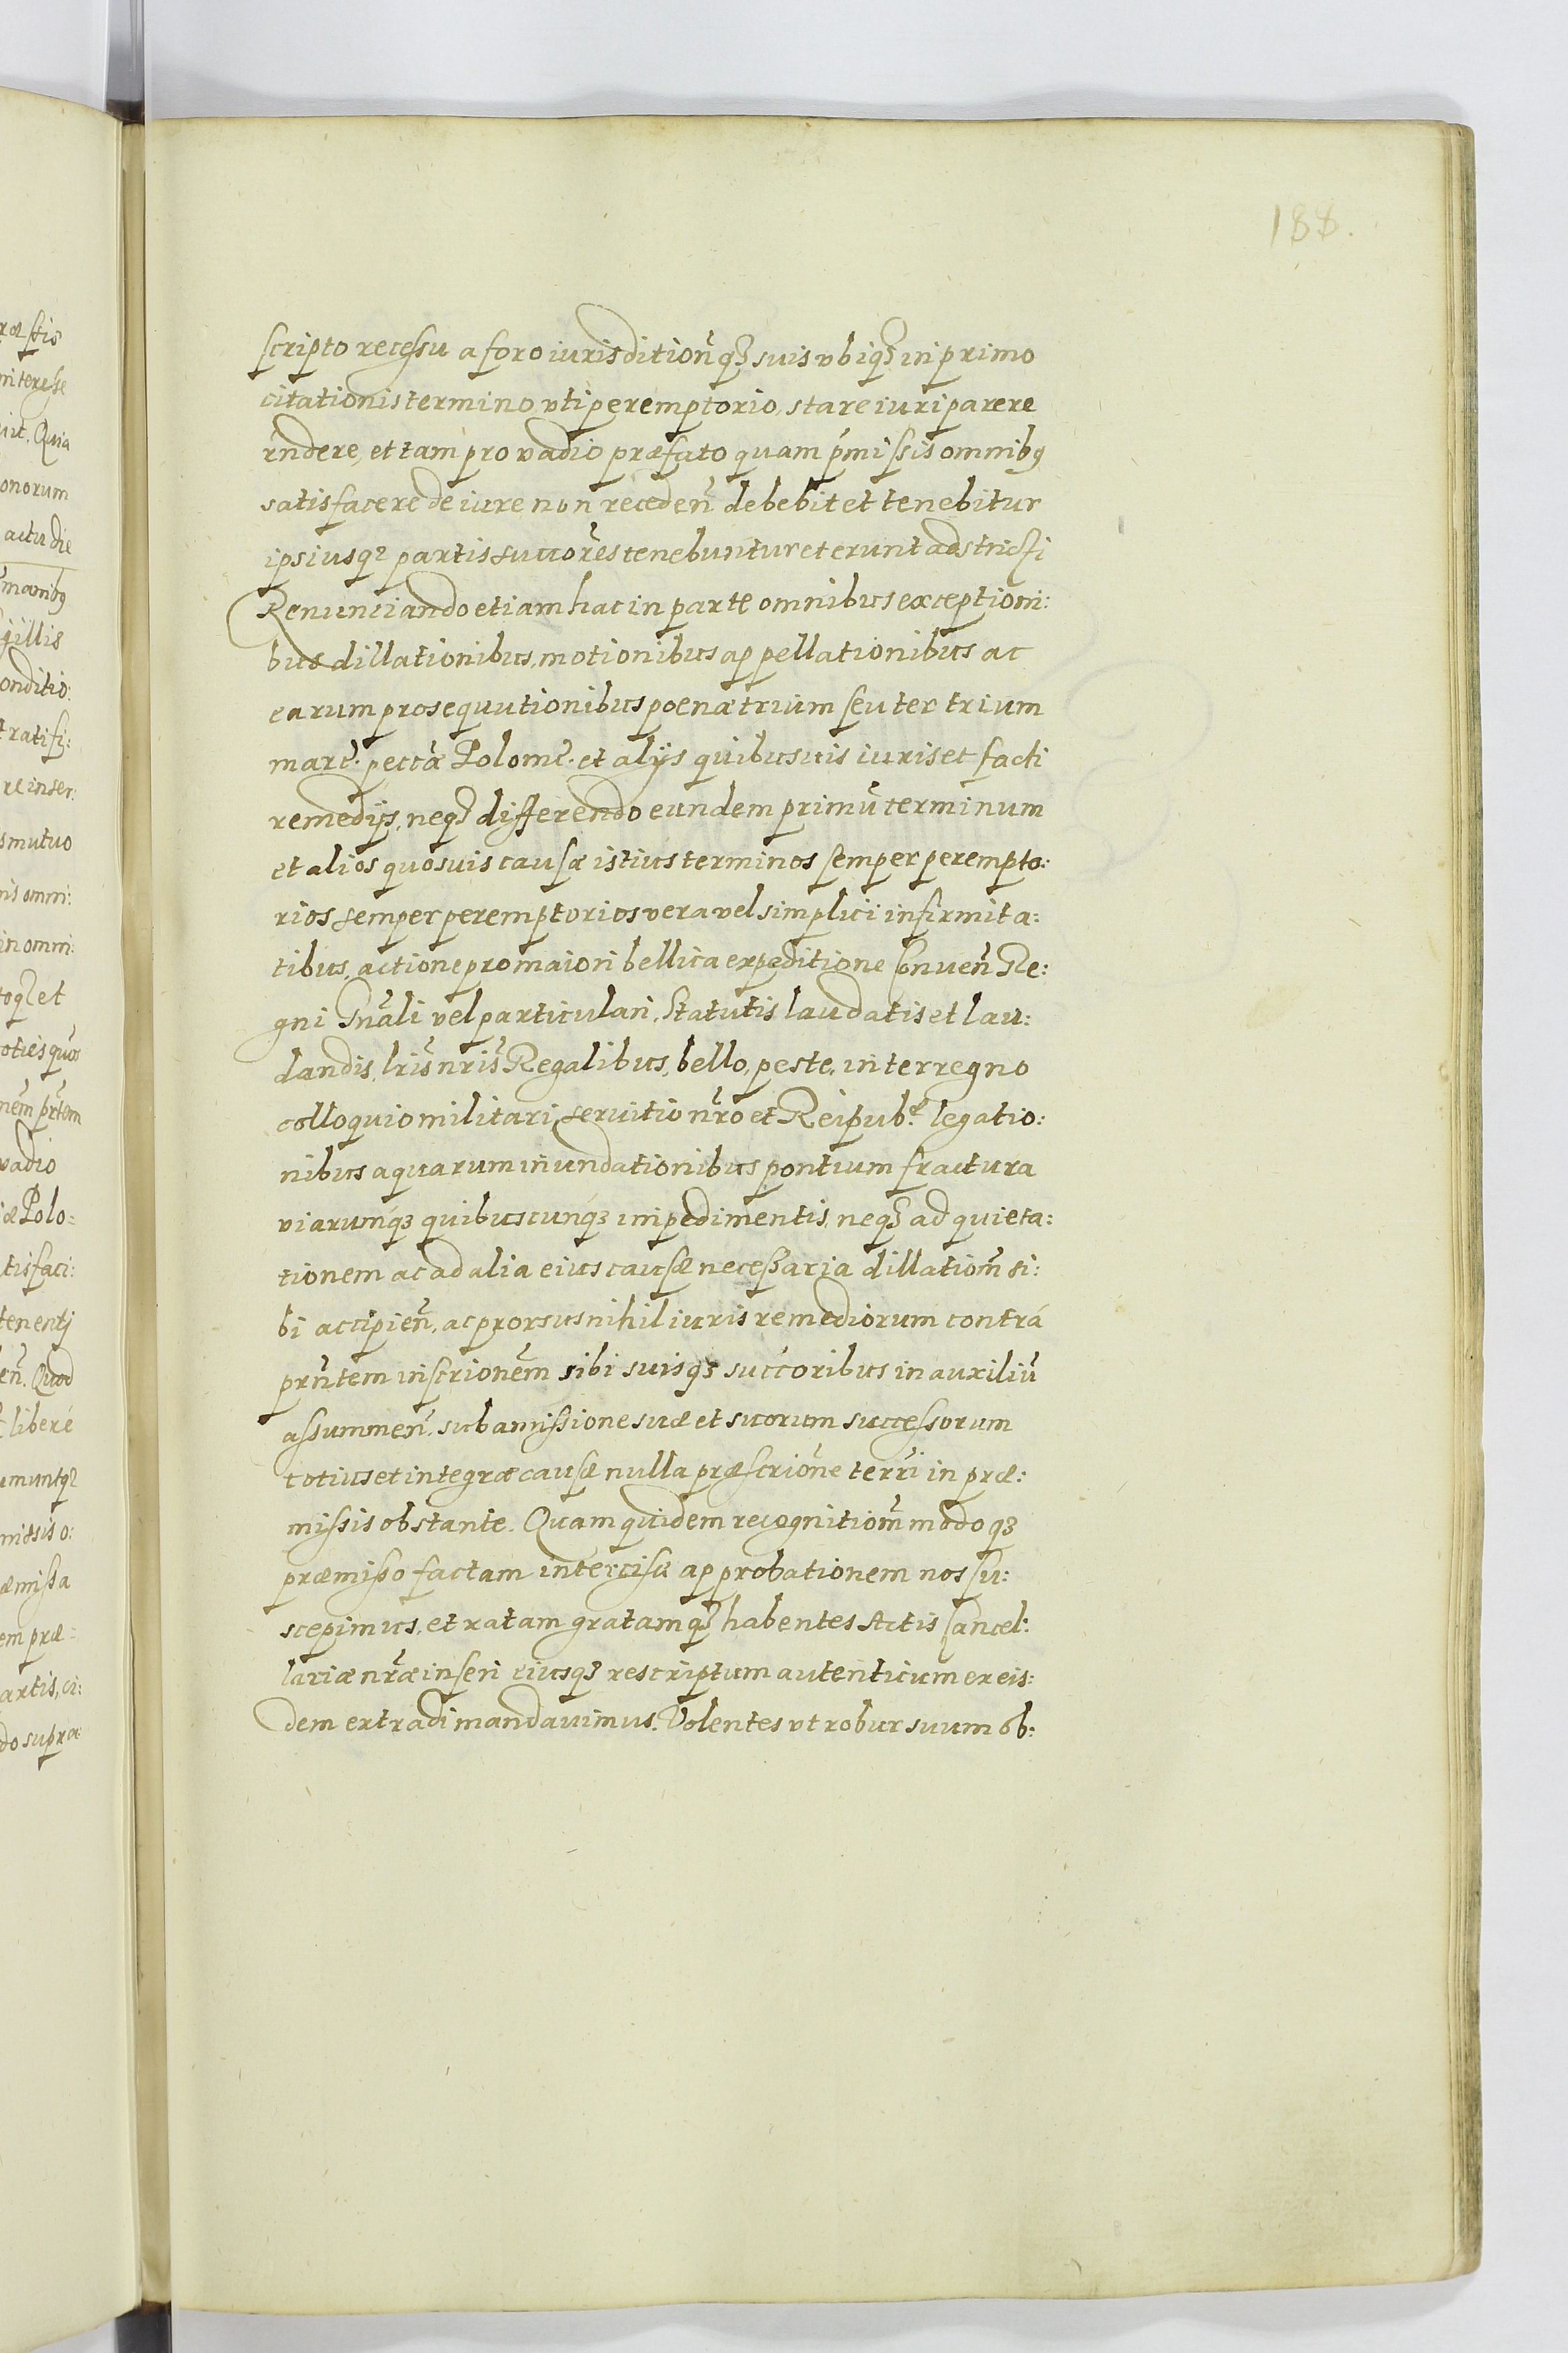 188.
scripto recessu a foro iurisditioñqꝫ suis vbiqꝫ in primo
citationis termino, vti peremptorio, stare iuri parere
rñdere, et tam pro vadio præfato quam p̃missis omnibꝯ
satisfacere de iure non receden̄ debebit et tenebitur
ipsiusqꝫ partis succores̄ tenebuntur et erunt adstricti
Renunciando etiam hac in parte omnibus exceptioni:
bus dillationibus, motionibus appellationibus ac
earum prosequutionibus poenæ trium seu ter trium
marc̄. peccā Polonic̄. et alijs quibusuis iuris et facti
remedijs, neqꝫ differendo eundem primū terminum
et alios quosuis causæ istius terminos semper perempto:
rios semper peremptorios vera vel simplici infirmita:
tibus, actione pro maiori bellica expeditione Conuen̄ Re:
gni Gñali vel particulari. Statutis laudatis et lau:
dandis, lris̄ nris̄ Regalibus, bello, peste, interregno
colloquio militari, seruitio nr̄o et Reipub.ᵉ legatio:
nibus aquarum inundationibus pontium fractura
viarumqꝫ quibuscunqꝫ impedimentis, neqꝫ ad quieta:
tionem ac ad alia eius causæ necessaria dillatiom̄ si:
bi accipien̄, ac prorsus nihil iuris remediorum contrá
prn̄tem inscrionēm sibi suisqꝫ succoribus in auxiliū
assummen̄. sub amissione suæ et suorum successorum
totius et integræ causæ nulla præscriōne terrī in præ:
missis obstante. Quam quidem recognitiom̄ modo qꝫ
præmisso factam intercisæ approbationem nos su:
scepimus, et ratam gratamqꝫ habentes Actis Cancel:
lariæ nr̄æ inseri eiusqꝫ rescriptum autenticum ex eis:
dem extradi mandauimus. Volentes vt robur suum ob: